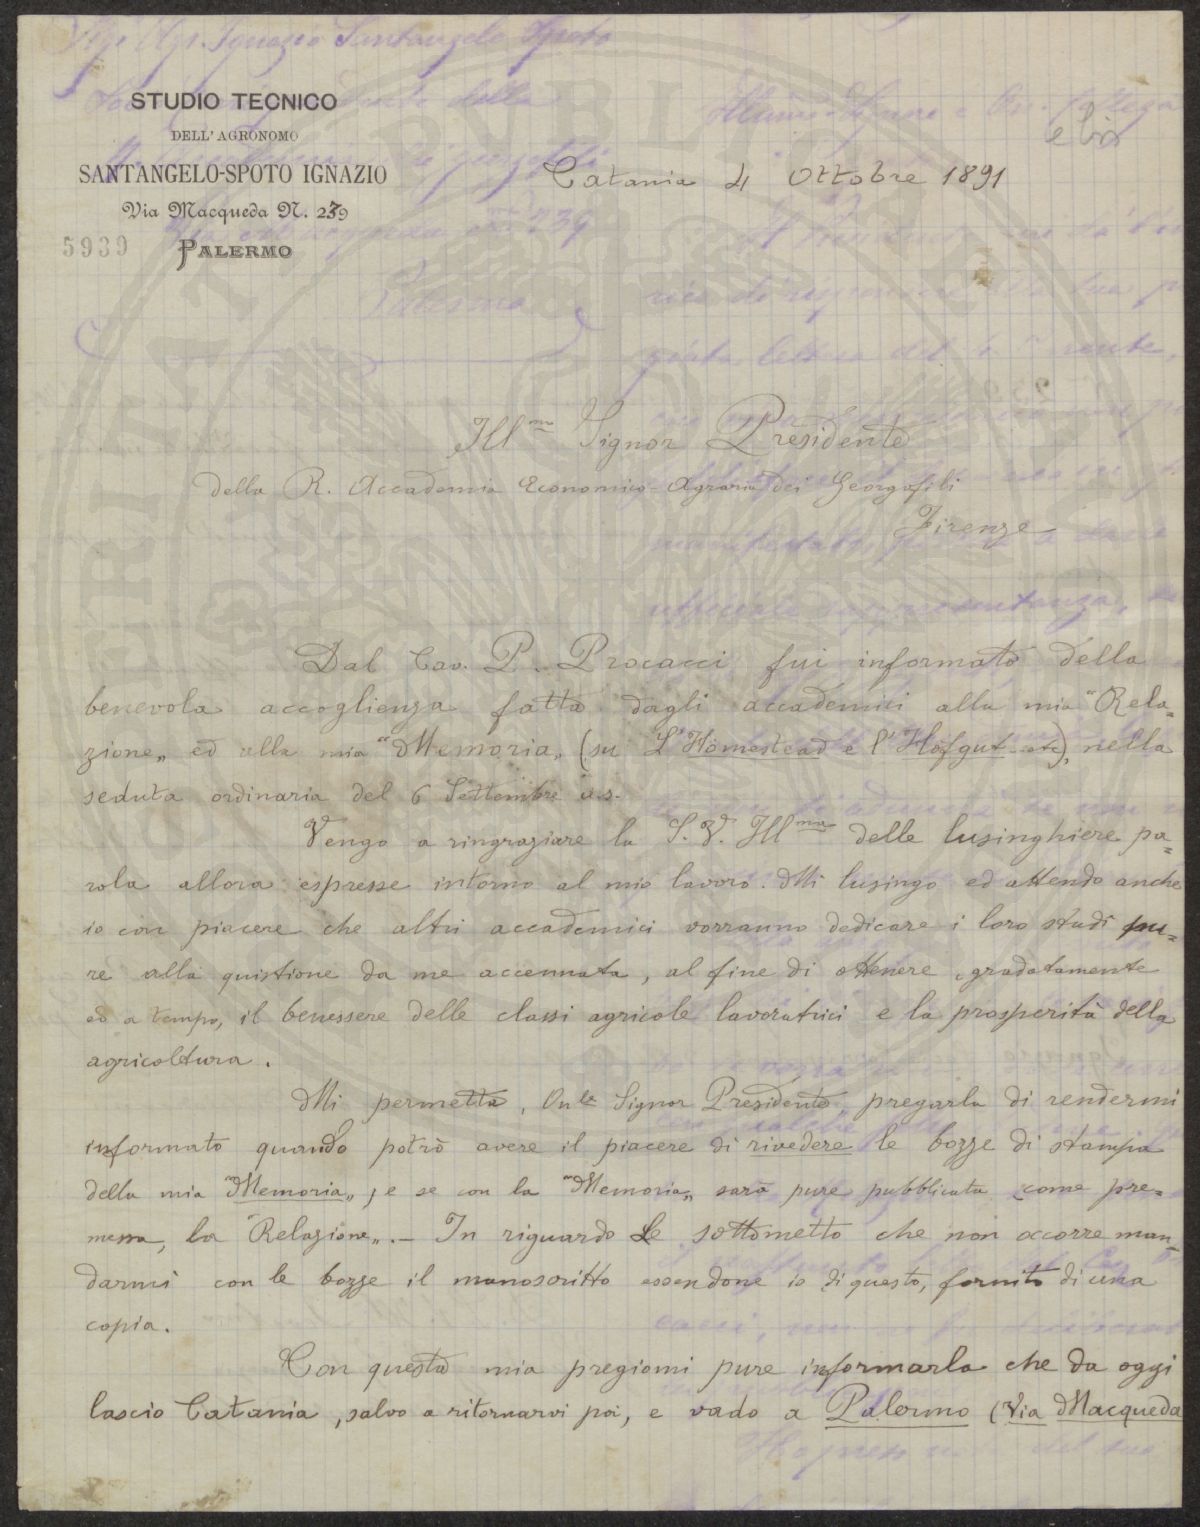 STUDIO TECNICO
DELL'AGRONOMO
SANTANGELO-SPOTO IGNAZIO
Via Macqueda N. 239
5939 PALERMO
e bis
Catania 4 Ottobre 1891
Ill.mo Signor Presidente
della R. Accademia Economico-Agraria dei Georgofili
Firenze
Dal Cav. P. Procacci fui informato della
benevola accoglienza fatta dagli accademici alla mia "Rela=
zione" ed alla mia "Memoria" (su L'Homestead e l'Höfgut etc), nella
seduta ordinaria del 6 Settembre u.s.
Vengo a ringraziare la S.V. Ill.ma delle lusinghiere pa=
rola allora espresse intorno al mio lavoro. Mi lusingo ed attendo anche
io con piacere che altri accademici vorranno dedicare i loro studi pu=
re alla quistione da me accennata, al fine di ottenere gradatamente
ed a tempo, il benessere delle classi agricole lavoratrici e la prosperità della
agricoltura.
Mi permetta, On.le Signor Presidente, pregarla di rendermi
informato quando potrò avere il piacere di rivedere le bozze di stampa
della mia "Memoria", e se con la "Memoria" sarà pure pubblicata come pre=
messa, la "Relazione". - In riguardo Le sottometto che non occorre man=
darmi con le bozze il manoscritto essendone io di questo, fornito di una
copia.
Con questa mia pregiomi pure informarla che da oggi
lascio Catania, salvo a ritornarvi poi, e vado a Palermo (Via Macqueda